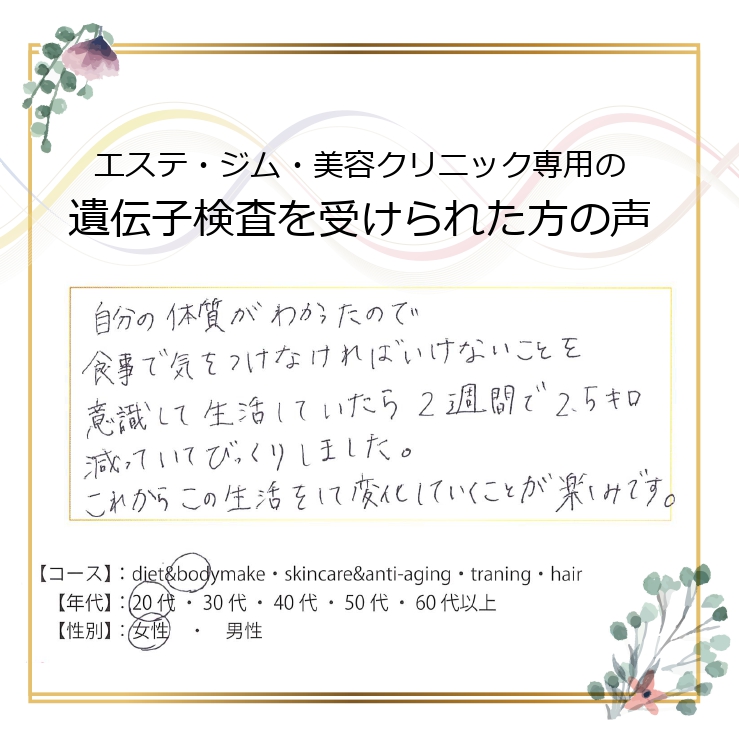 エステ・ジム・美容クリニック専用の
遺伝子検査を受けられた方の声
自分の体質がわかったので
食事で気をつけなければいけないことを
意識して生活していたら2週間で2.5キロ
減っていてびっくりしました。
これからこの生活をして変化していくことが楽しみです。
【コース】：diet&bodymake・skincare&anti-aging・traning・hair
【年代】：20代・30代・40代・50代・60代以上
【性別】：女性　・　男性